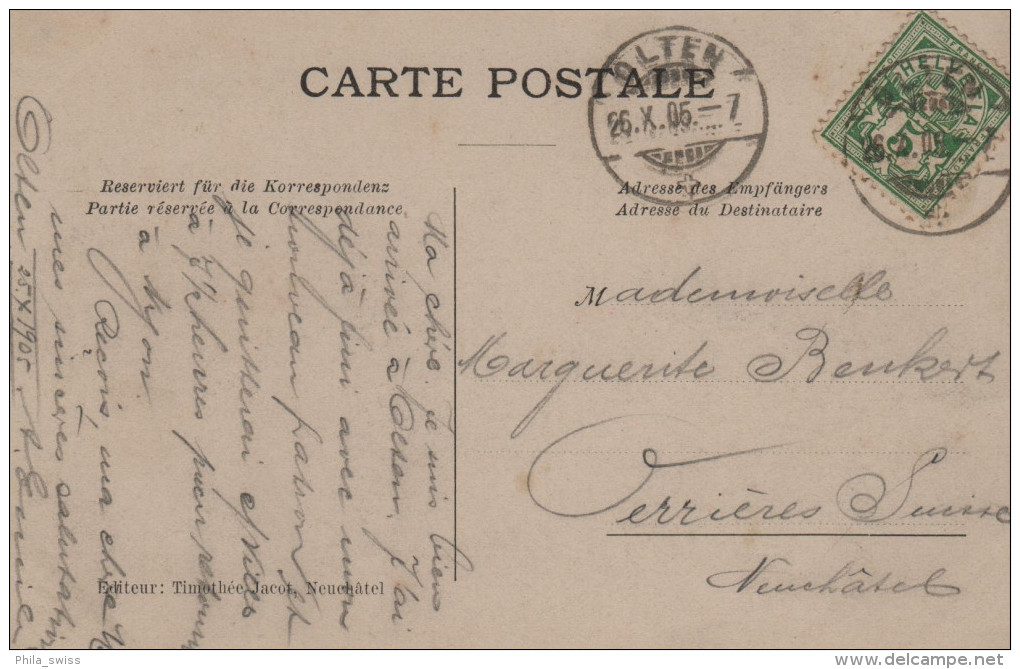 CARTE POSTALE
OLTEN
26.X.05.-7
HELVETIA
Reserviert für die Korrespondenz
Partie réserrée à la Correspondance
Adresse des Empfängers
Adresse du Destinataire
Mademoiselle
Marguerite Benkert
Verrières Suisse
Neuchâtel
Ma chère. Je suis bien
arrivée à Olten. J'ai
déjà fini avec mon
nouveau patron et
je quitterai
à 7 heures pour
à Nyon
Reçois, ma chère
mes sincères
Olten 25.X.1905
Editeur: Timothée Jacot, Neuchâtel
Phila_swiss
www.delcampe.net